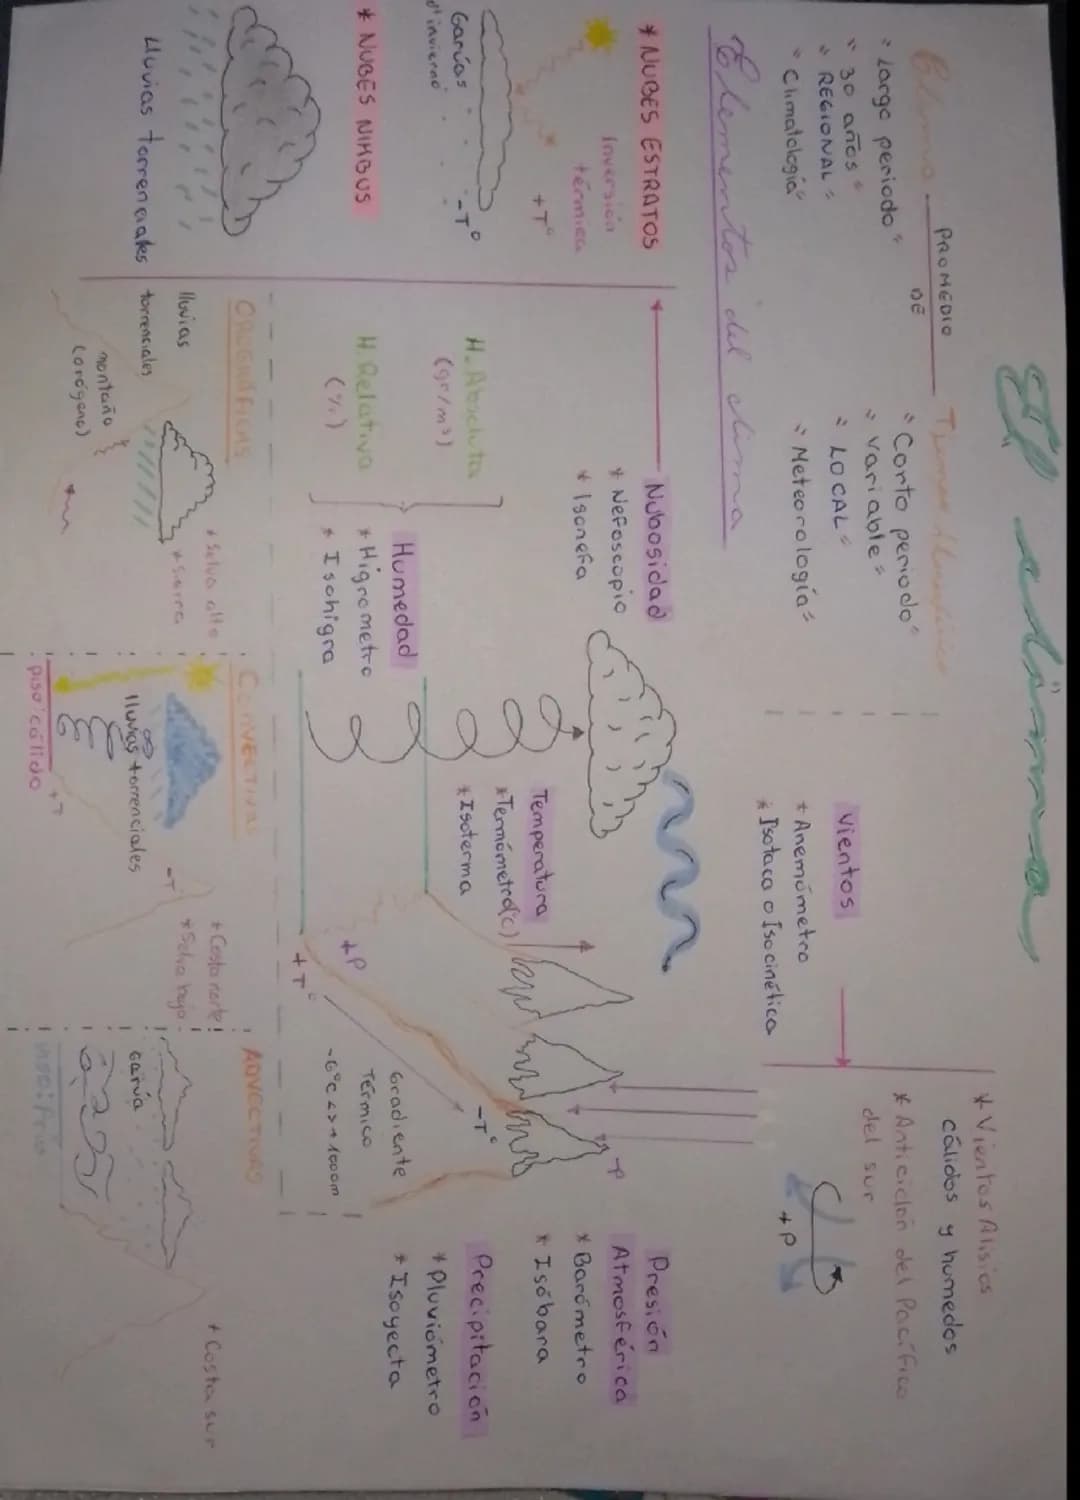 El clima
Clima
PROMEDIO
DE
Tiempo Atmosférico
"Largo periodo"
"30 años"
"REGIONAL"
"Climatología"
"Corto periodo"
"Variable"
"LOCAL"
"Meteorología"
Vientos
* Anemómetro
* Isotaca o Isocinética
* Vientos Alisios
cálidos y humedos
* Anticiclón del Pacífico
del sur
+P
Elementos del clima
* NUBES ESTRATOS
Inversión
térmica
+T°
Garúas
d' invierno
-T°
* NUBES NIMBUS
Lluvias torrenciales
Nubosidad
* Nefoscopio
* Isonefa
H. Absoluta
(gr/m³)
H. Relativa
(%)
Humedad
* Higrometro
* Isohigra
Temperatura
* Termómetro(C)
* Isoterma
+P
+T°
-P
-T°
Gradiente
Térmico
-6°C <> +1000m
Presión
Atmosférica
* Barómetro
* Isóbara
Precipitación
* Pluviómetro
* Isoyecta
OROGRÁFICAS
lluvias
torrenciales
montaña
(orógeno)
* Selva alta
* Sierra
CONVECTIVAS
lluvias torrenciales
piso cálido
+T
-T
* Costa norte
* Selva baja
ADVECTIVAS
Garúa
piso frio
* Costa sur